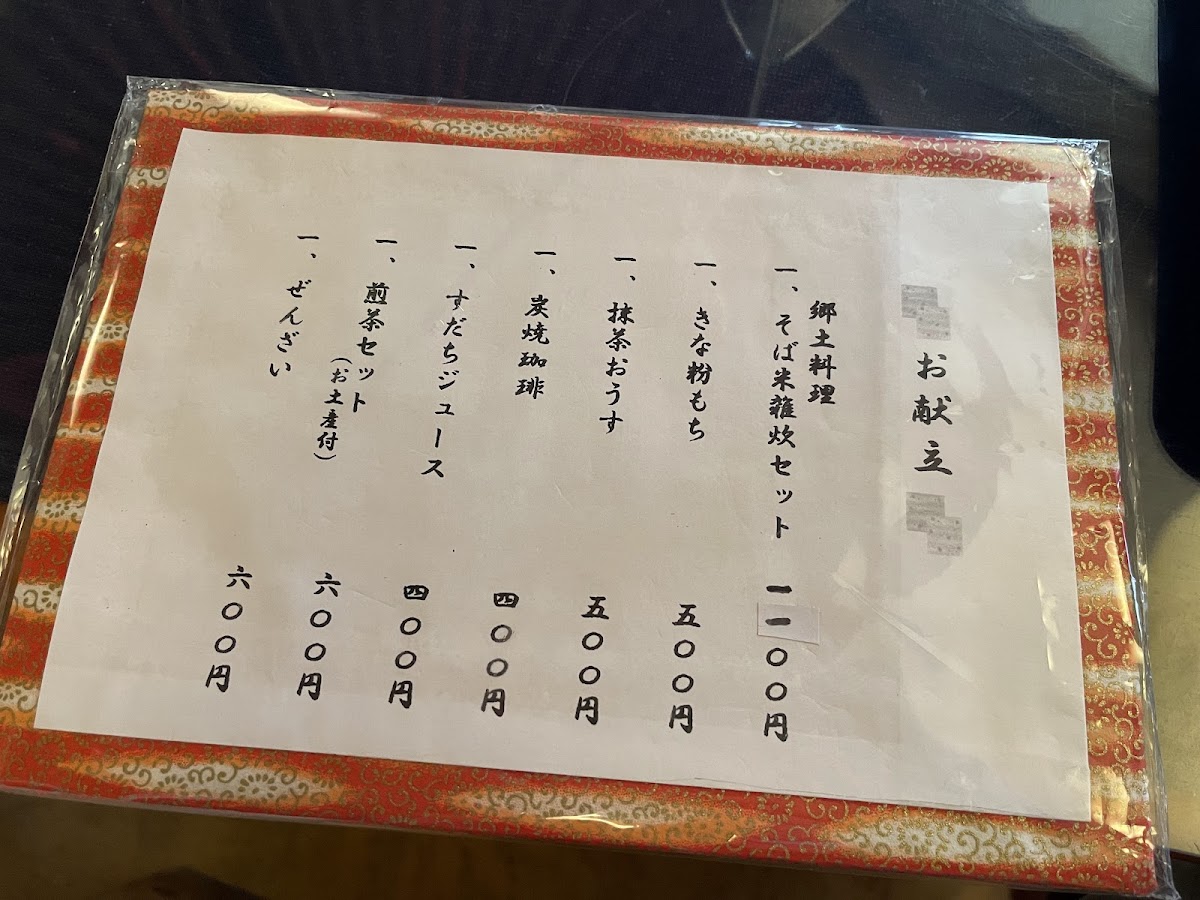 お献立
郷土料理
一、そば米雑炊セット 一一〇〇円
一、きな粉もち 五〇〇円
一、抹茶おうす 五〇〇円
一、炭焼珈琲 四〇〇円
一、すだちジュース 四〇〇円
一、煎茶セット 六〇〇円
（お土産付）
一、ぜんざい 六〇〇円